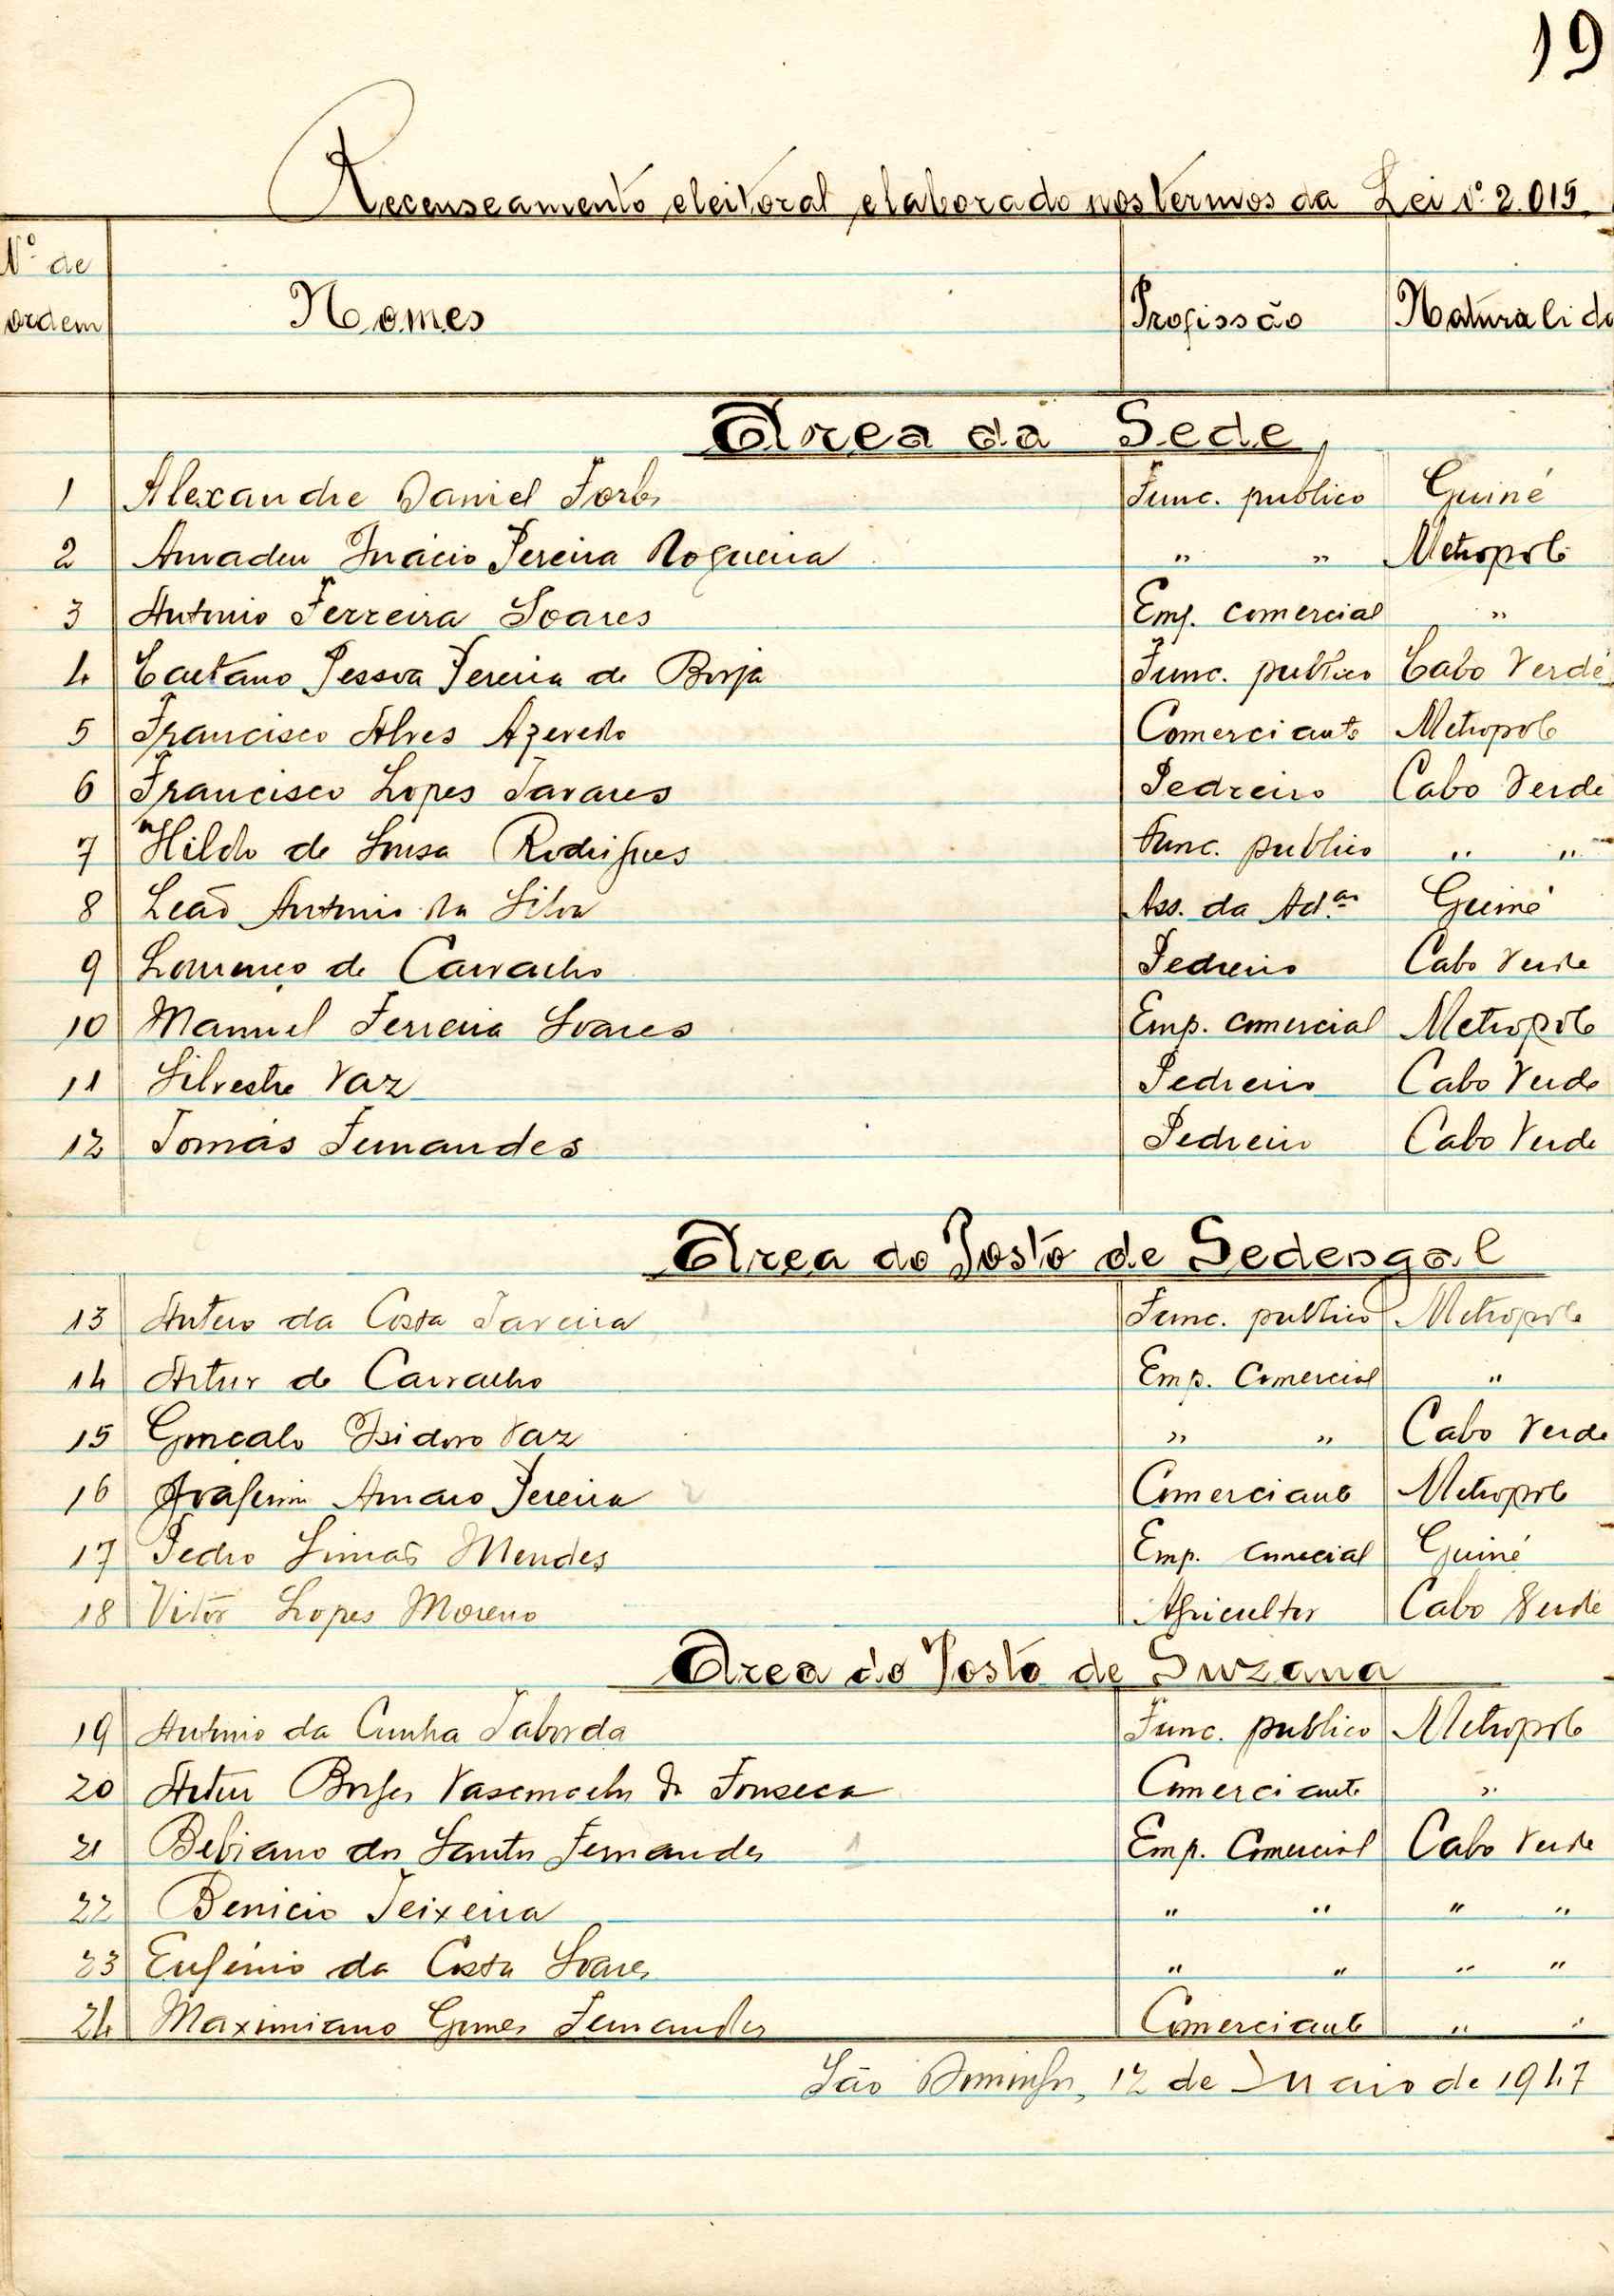 19
Recenseamento eleitoral elaborado nos termos da Lei nº 2.015
Nº de ordem Nomes Profissão Naturalida
Area da Sede
1 Alexandre Daniel Forbs Func. publico Guiné
2 Amadeu Inácio Pereira Nogueira " " Metropole
3 Antonio Ferreira Soares Emp. comercial "
4 Caetano Pessoa Pereira de Borja Func. publico Cabo Verde
5 Francisco Alves Azevedo Comerciante Metropole
6 Francisco Lopes Tavares Pedreiro Cabo Verde
7 Hildo de Sousa Rodrigues Func. publico " "
8 Leão Antonio da Silva Ass. da Ad.ão Guiné
9 Lourenço de Carvalho Pedreiro Cabo Verde
10 Manuel Ferreira Soares Emp. comercial Metropole
11 Silvestre Vaz Pedreiro Cabo Verde
12 Tomás Fernandes Pedreiro Cabo Verde
Area do Posto de Sedengal
13 Antero da Costa Taveira Func. publico Metropole
14 Artur de Carvalho Emp. Comercial "
15 Gonçalo Isidoro Vaz " " Cabo Verde
16 Joaquim Amaro Pereira Comerciante Metropole
17 Pedro Simas Mendes Emp. Comercial Guiné
18 Vitór Lopes Moreno Agricultor Cabo Verde
Area do Posto de Suzana
19 Antonio da Cunha Taborda Func. publico Metropole
20 Artur Borges Vasconcelos da Fonseca Comerciante "
21 Bebiano dos Santos Fernandes Emp. Comercial Cabo Verde
22 Benicio Teixeira " " " "
23 Eugénio da Costa Soares " " " "
24 Maximiano Gomes Fernandes Comerciante " "
São Domingos, 12 de Maio de 1947